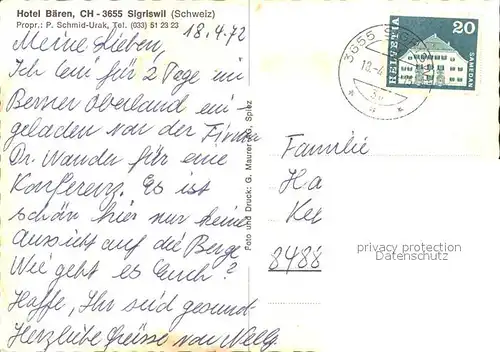 Hotel Bären, CH - 3655 Sigriswil (Schweiz)
Propr.: P. Schmid-Urak, Tel. (033) 51 23 23
18.4.72
Meine Lieben,
Ich bin für 2 Tage im
Berner Oberland ein-
geladen von der Firma
Dr. Wander für eine
Konferenz. Es ist
schön hier nur keine
Aussicht auf die Berge
Wie geht es Euch?
Hoffe, Ihr seid gesund.
Herzliche Grüsse von Nelly
Foto und Druck: G. Maurer AG. Spiez
3655
HELVETIA
20
SAMEDAN
Familie
Ha
8488
privacy protection
Datenschutz